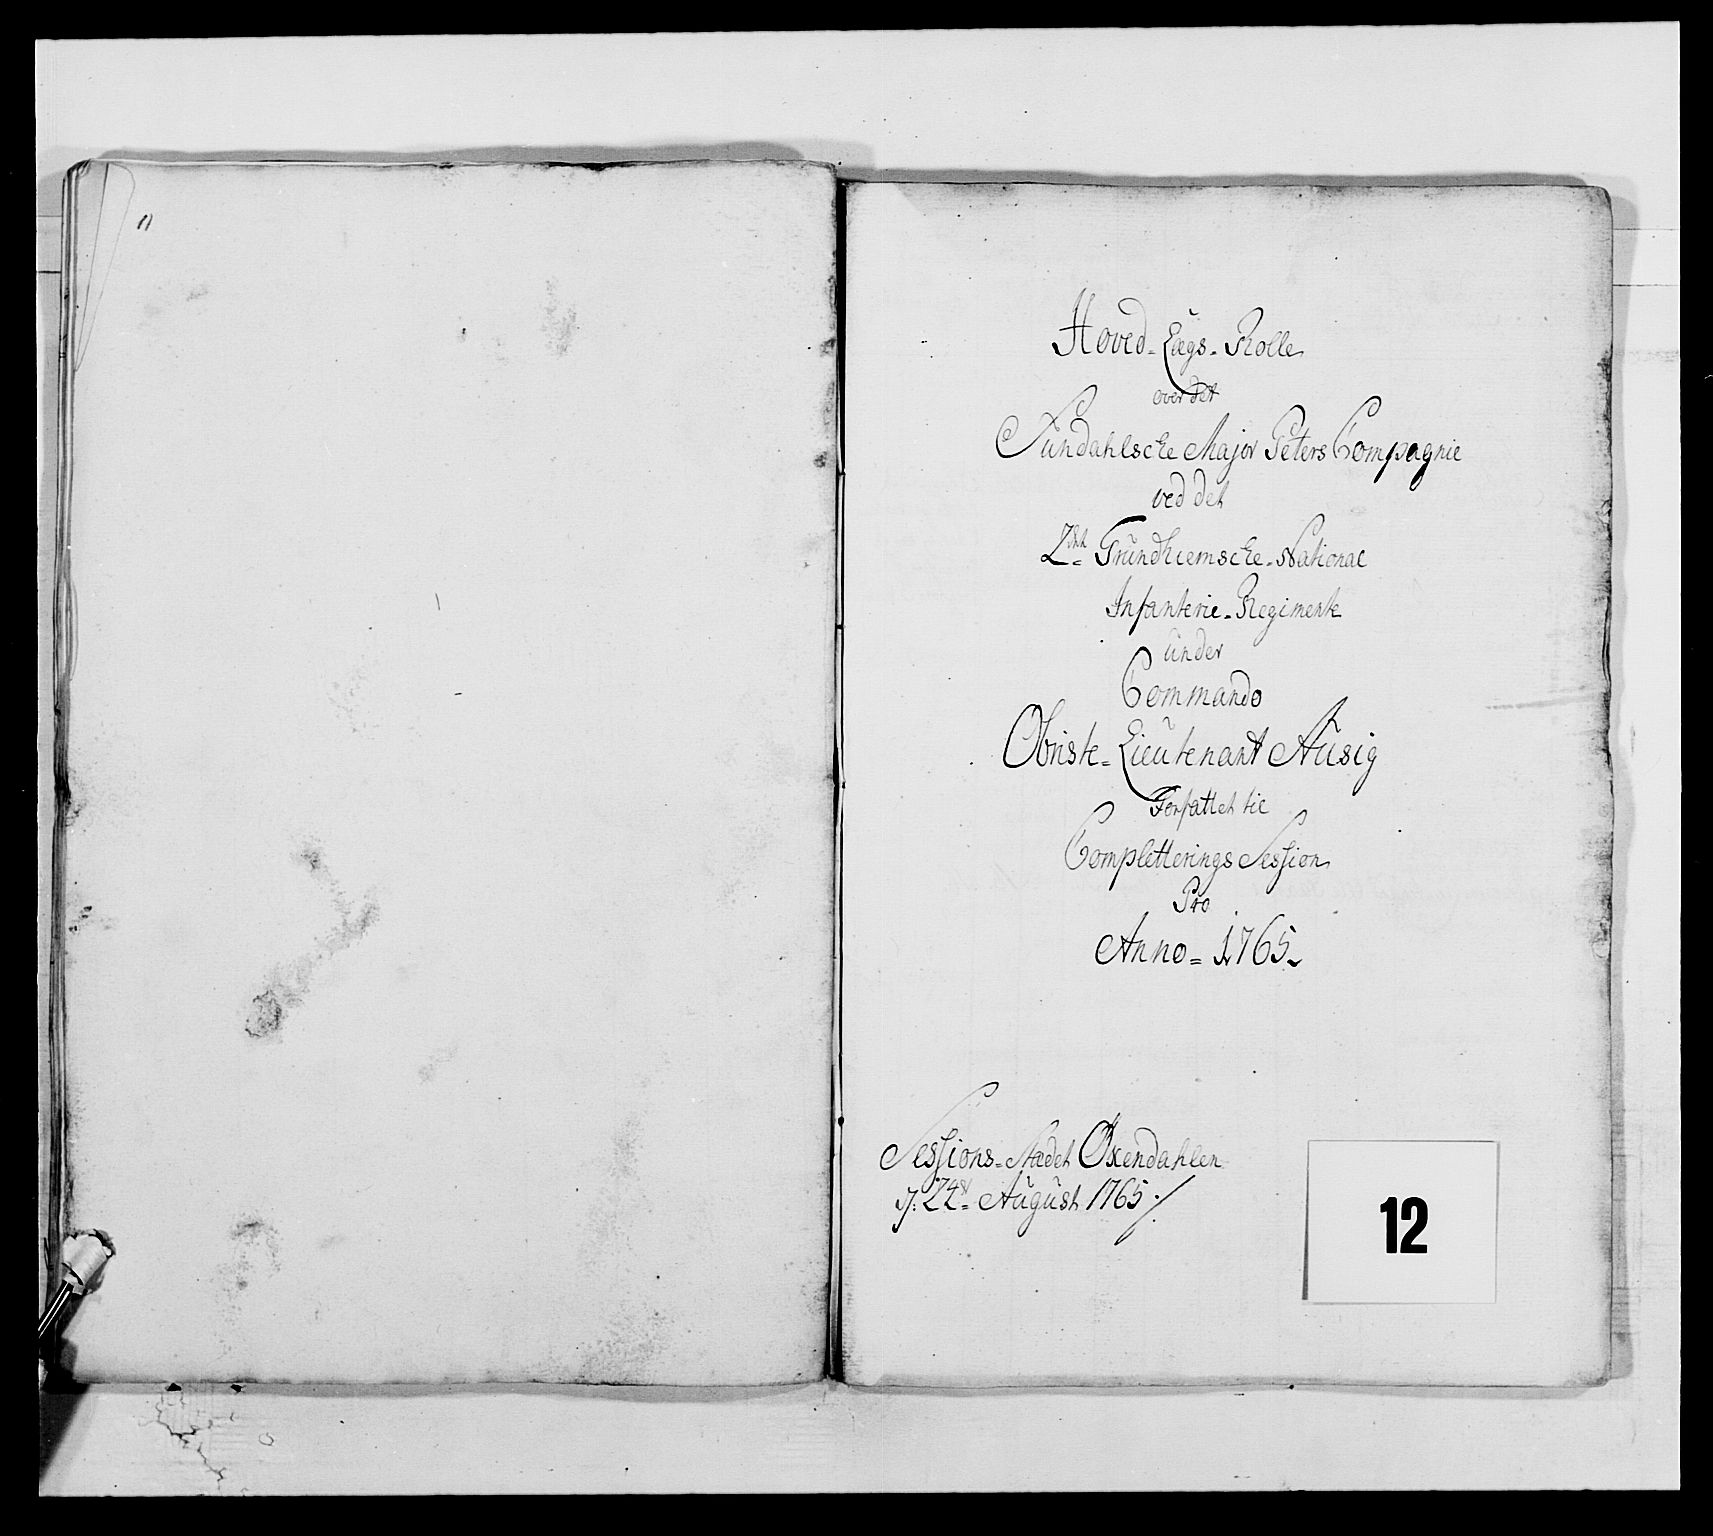 11
Hoved-Lægs-Rolle
over det
Sundahlsche Major Peters Compagnie
ved det
2det Trundhiemsche-National
Infanterie-Regimente
under
Commando
Obriste-Lieutenant Ausig
Forfattet til
Completterings Session
Pro
Anno=1765
Sessions-Stædet Øxendahlen
d: 24de August 1765 ./.
12